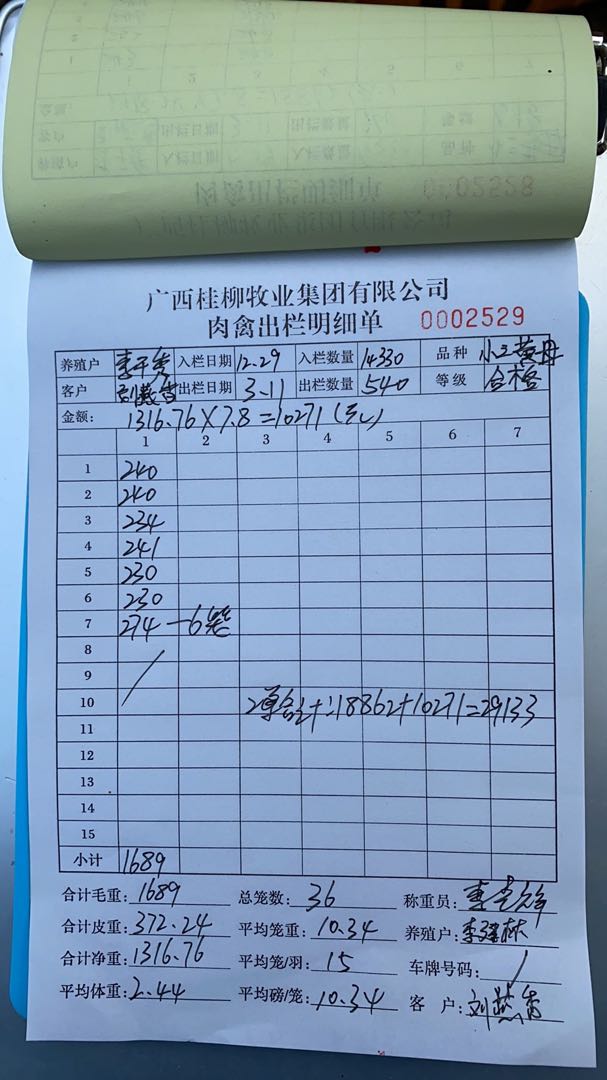 广西桂柳牧业集团有限公司
肉禽出栏明细单 0002529
养殖户 入栏日期 12.29 入栏数量 14330 品种
客户 刘燕香 出栏日期 3.11 出栏数量 540 等级 合格
金额: 1316.76×7.8=10271(元)
1 2 3 4 5 6 7
1 240
2 240
3 234
4 241
5 230
6 230
7 274 — 6笼
8
9
10 2单合计:18862+10271=29133
11
12
13
14
15
小计 1689
合计毛重: 1689 总笼数: 36 称重员:
合计皮重: 372.24 平均笼重: 10.34 养殖户:
合计净重: 1316.76 平均笼/羽: 15 车牌号码: /
平均体重: 2.44 平均磅/笼: 10.34 客 户: 刘燕香